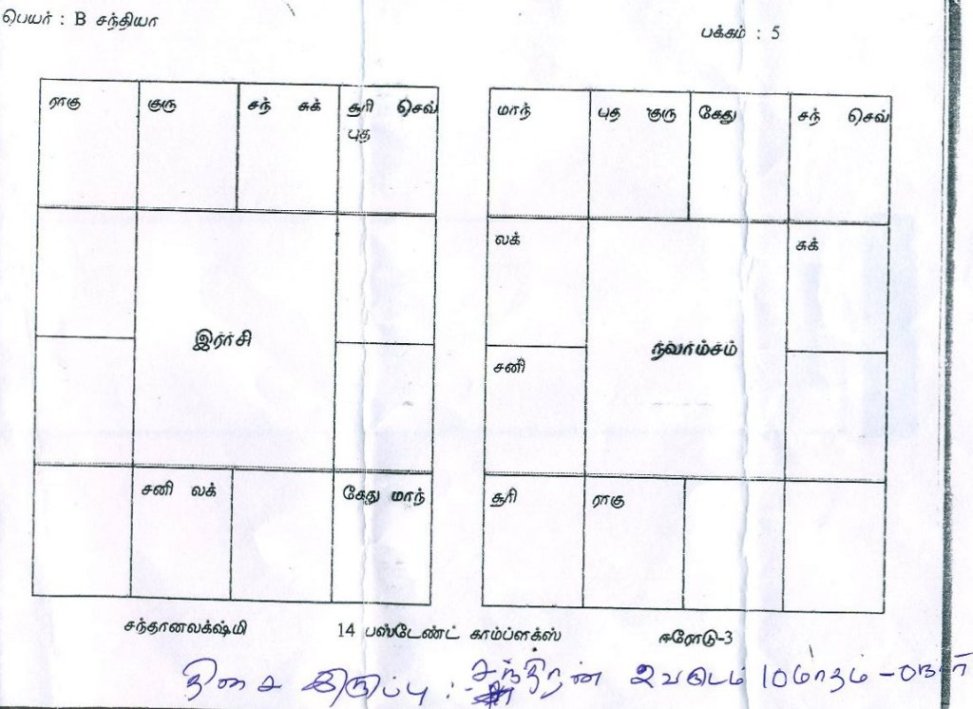 பெயர் : B சந்தியா
பக்கம் : 5
ராகு குரு சந் சுக் சூரி செவ்
புத
இரர்சி
சனி லக் கேது மாந்
மாந் புத குரு கேது சந் செவ்
லக் சுக்
நவாம்சம்
சனி
சூரி ராகு
சந்தானலக்ஷ்மி 14 பஸ்டேண்ட் காம்ப்ளக்ஸ் ஈரோடு-3
திசை இருப்பு : சந்திரன் 2 வருடம் 10 மாதம் - 0 நாள்